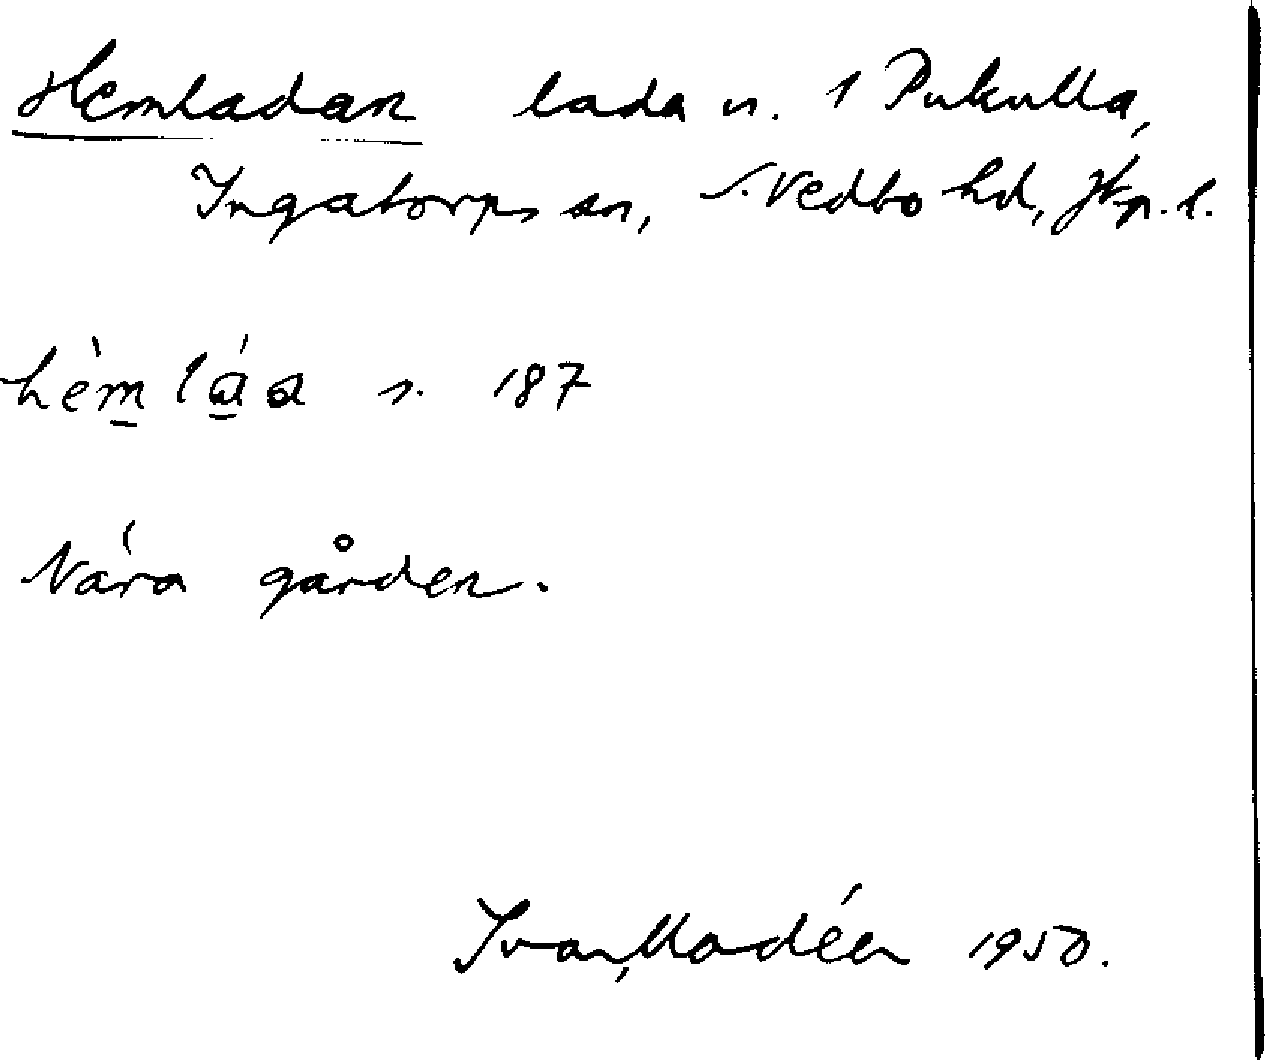 Hemladan lada n. 1 Pukulla,
Ingatorps sn, S. Vedbo hd, Jkp. l.
hèm láa s. 187
Nära gården.
Ivar Modéer 1950.